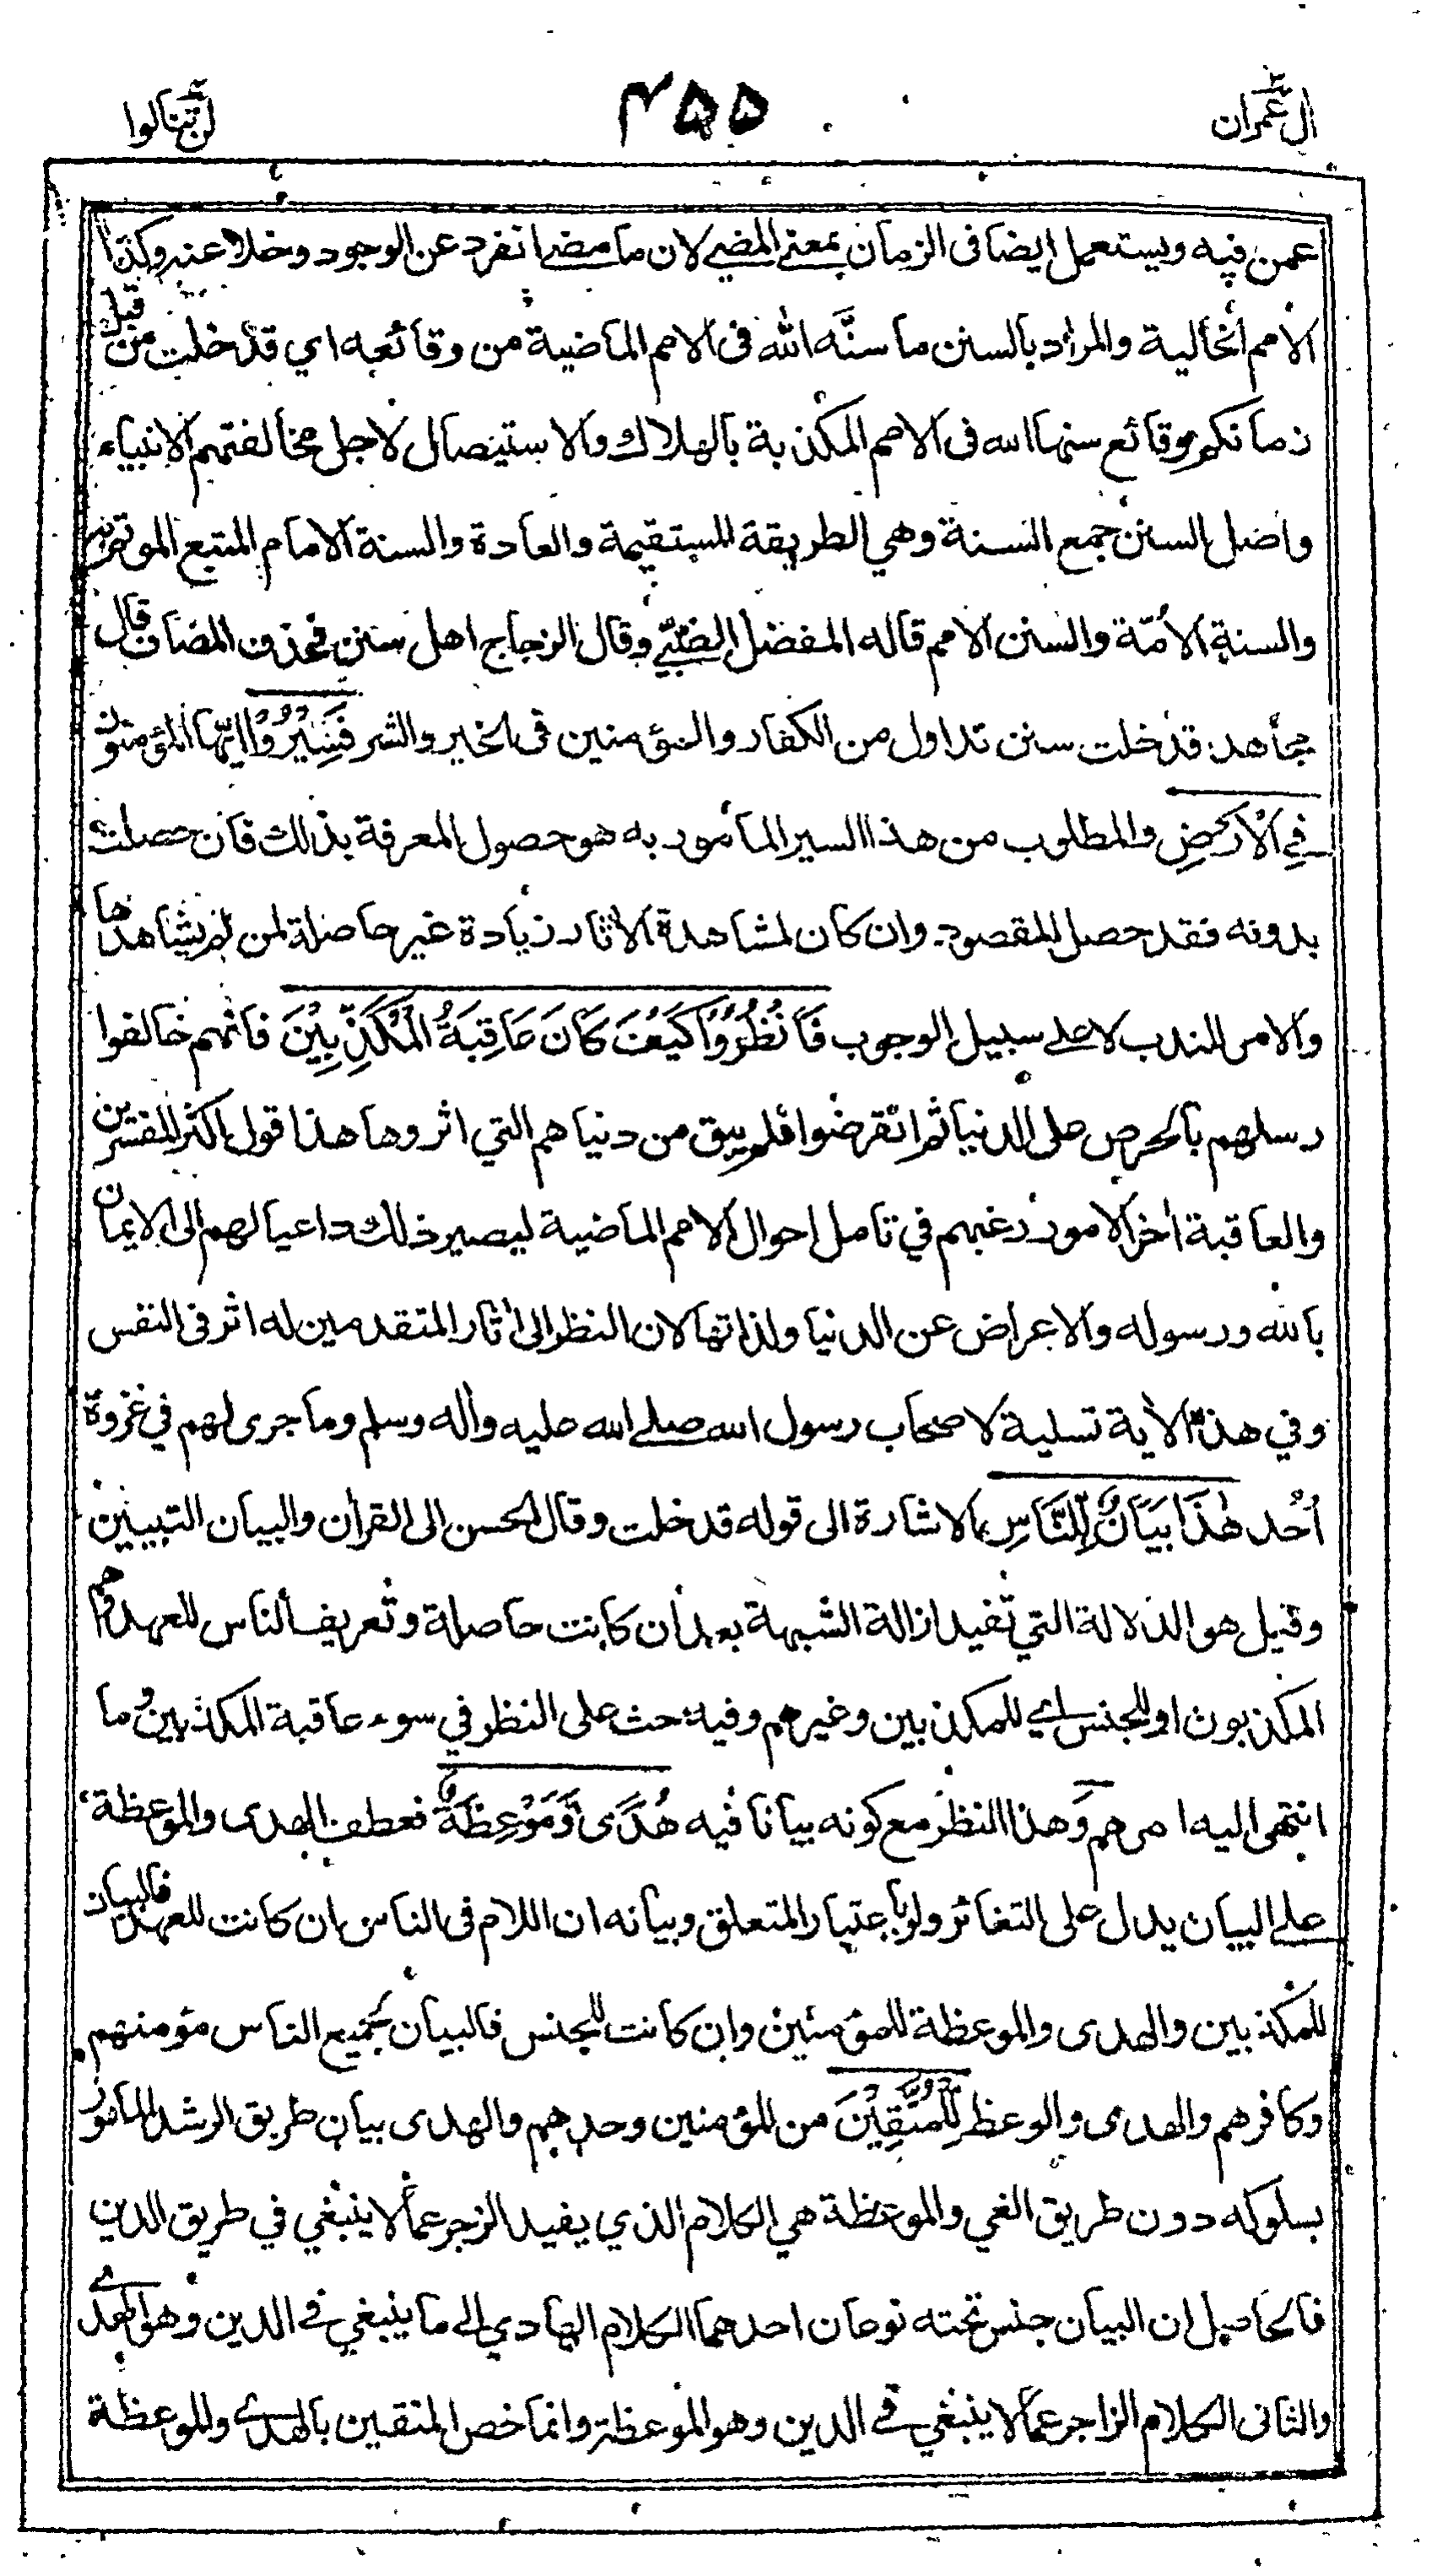 ال عمران
٤٥٥
لن تنالوا
عمن فيه ويستعمل ايضا فى الزمان بمعنى المضي لان ما مضى انفرد عن الوجود وخلا عنه وكذا
الامم الخالية والمراد بالسنن ما سنَّه الله فى الامم الماضية من وقائعه اي قد خلت من قبل
زمانكم وقائع سنها الله فى الامم المكذبة بالهلاك والاستيصال لاجل مخالفتهم الانبياء
واصل السنن جمع السنة وهي الطريقة المستقيمة والعادة والسنة الامام المتبع الموتم به
والسنة الأمّة والسنن الامم قاله المفضل الضبّي وقال الزجاج اهل سنن فحذف المضاف قال
مجاهد قد خلت سنن تداول من الكفار والمؤمنين فى الخير والشر فَسِيْرُوْا ايّها المؤمنون
فِي الْاَرْضِ والمطلوب من هذا السير المأمور به هو حصول المعرفة بذلك فان حصلت
بدونه فقد حصل المقصود وان كان لمشاهدة الأثار زيادة غير حاصلة لمن لم يشاهدها
والامر للندب لا على سبيل الوجوب فَانْظُرُوْا كَيْفَ كَانَ عَاقِبَةُ الْمُكَذِّبِيْنَ فانهم خالفوا
رسلهم بالحرص على الدنيا ثم انقرضوا فلم يبق من دنياهم التي اثروها هذا قول اكثر المفسرين
والعاقبة أخر الامور رغبهم في تامل احوال الامم الماضية ليصير ذلك داعيا لهم الى الايمان
بالله ورسوله والاعراض عن الدنيا ولذاتها لان النظر الى أثار المتقدمين له اثر فى النفس
وفي هذه الأية تسلية لاصحاب رسول الله صلى الله عليه وأله وسلم وما جرى لهم في غزوة
اُحُد هٰذَا بَيَانٌ لِّلنَّاسِ الاشارة الى قوله قد خلت وقال الحسن الى القرأن والبيان التبيين
وقيل هو الدلالة التي تفيد ازالة الشبهة بعد ان كانت حاصلة وتعريف الناس للعهد وهم
المكذبون او للجنس اي للمكذبين وغيرهم وفيه حث على النظر في سوء عاقبة المكذبين وما
انتهى اليه امرهم وَهذا النظر مع كونه بيانا فيه هُدًى وَّمَوْعِظَةٌ فعطف الهدى والموعظة
على البيان يدل على التغائر ولو باعتبار المتعلق وبيانه ان اللام فى الناس ان كانت للعهد فالبيان
للمكذبين والهدى والموعظة للمؤمنين وان كانت للجنس فالبيان لجميع الناس مؤمنهم
وكافرهم والهدى والوعظ لِلْمُتَّقِيْنَ من المؤمنين وحدهم والهدى بيان طريق الرشد المامور
بسلوكه دون طريق الغي والموعظة هي الكلام الذي يفيد الزجر عما لا ينبغي في طريق الدين
فالحاصل ان البيان جنس تحته نوعان احدهما الكلام الهادي الى ما ينبغي في الدين وهو الهدى
والثانى الكلام الزاجر عما لا ينبغي في الدين وهو الموعظة وانما خص المتقين بالهدى والموعظة